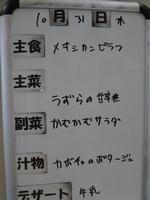 10月31日 水
主食 メキシカンピラフ
主菜
うずらの甘辛煮
副菜 かむかむサラダ
汁物 カボチャのポタージュ
デザート 牛乳